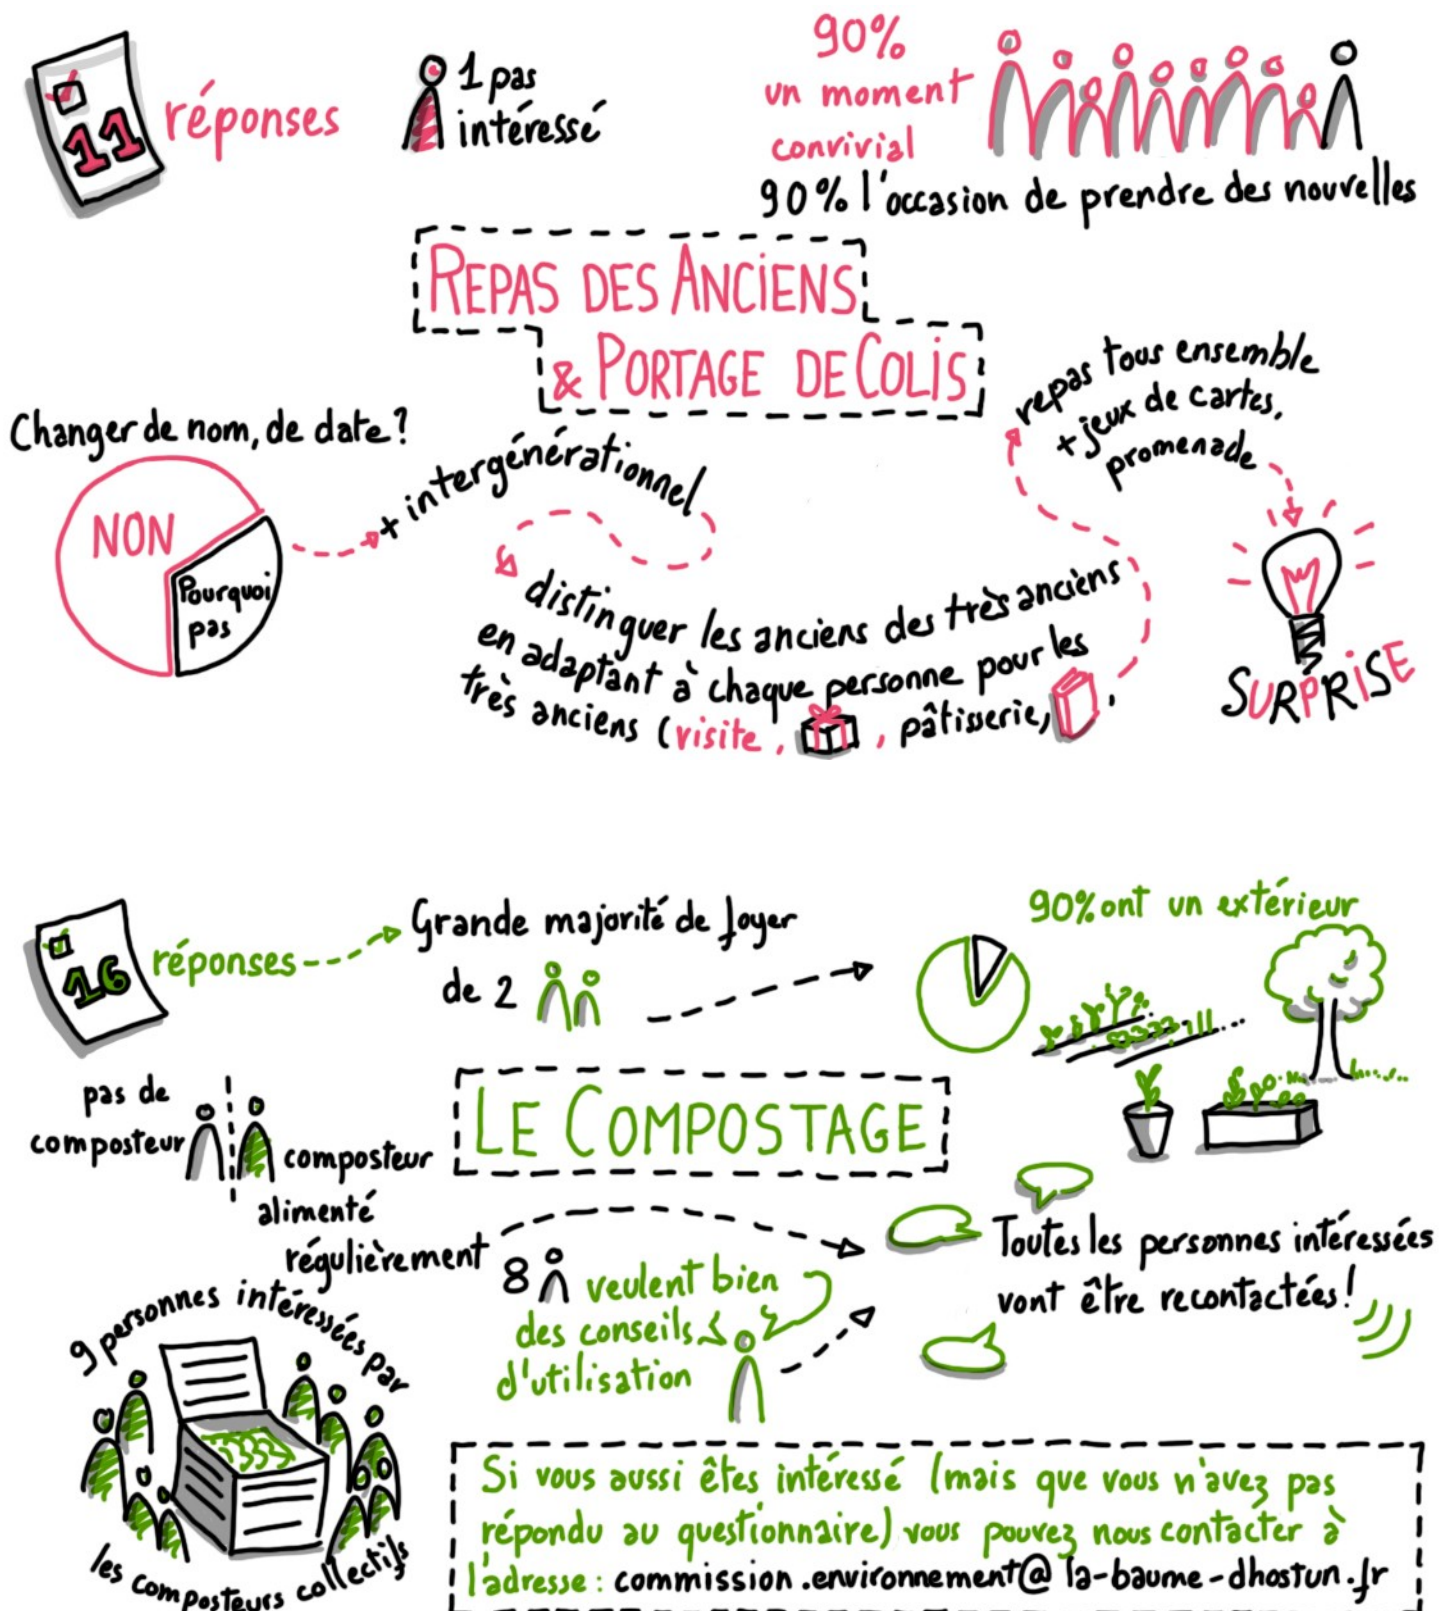 11
réponses
1 pas
intéressé
90%
un moment
convivial
90% l'occasion de prendre des nouvelles
REPAS DES ANCiENS
& PORTAGE DE COLiS
Changer de nom, de date?
NON
Pourquoi
pas
+ intergénérationnel
distinguer les anciens des très anciens
en adaptant à chaque personne pour les
très anciens (visite, , pâtisserie, ,
repas tous ensemble
+ jeux de cartes,
promenade
SURPRiSE
16
réponses
Grande majorité de foyer
de 2
90% ont un extérieur
pas de
composteur
composteur
alimenté
régulièrement
LE COMPOSTAGE
8 veulent bien
des conseils
d'utilisation
Toutes les personnes intéressées
vont être recontactées!
9 personnes intéressées par
les composteurs collectifs
Si vous aussi êtes intéressé (mais que vous n'avez pas
répondu au questionnaire) vous pouvez nous contacter à
l'adresse : commission.environnement@la-baume-dhostun.fr